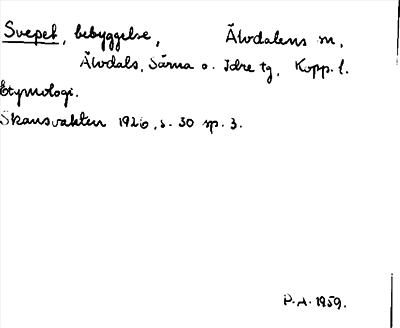 Svepet, bebyggelse, Älvdalens m,
Älvdals, Särna o. Idre tg, Kopp. l.
Etymologi.
Skansvakten 1926, s. 30 sp. 3.
P.A. 1959.